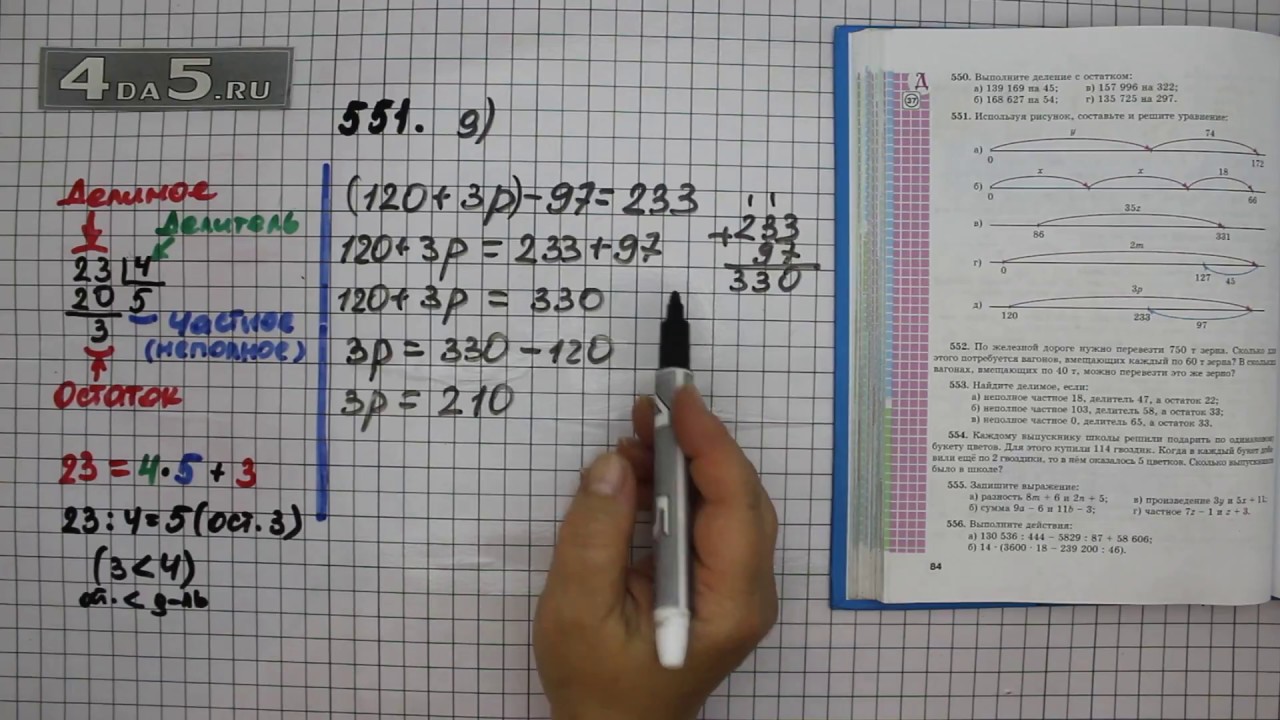 4DA5.RU
551. д)
Делимое
Делитель
23 4
20 5
3
Частное
(неполное)
Остаток
23 = 4·5 + 3
23 : 4 = 5 (ост. 3)
(3 < 4)
ост. < д-ль
(120 + 3p) - 97 = 233
120 + 3p = 233 + 97
120 + 3p = 330
3p = 330 - 120
3p = 210
1 1
+233
97
330
Д
37
550. Выполните деление с остатком:
а) 139 169 на 45; в) 157 996 на 322;
б) 168 627 на 54; г) 135 725 на 297.
551. Используя рисунок, составьте и решите уравнение:
y 74
а) 0 172
x x 18
б) 0 66
35z
в) 86 331
2m
г) 0 127 45
3p
д) 120 233 97
552. По железной дороге нужно перевезти 750 т зерна. Сколько для
этого потребуется вагонов, вмещающих каждый по 60 т зерна? В скольких
вагонах, вмещающих по 40 т, можно перевезти это же зерно?
553. Найдите делимое, если:
а) неполное частное 18, делитель 47, а остаток 22;
б) неполное частное 103, делитель 58, а остаток 33;
в) неполное частное 0, делитель 65, а остаток 33.
554. Каждому выпускнику школы решили подарить по одинаковому
букету цветов. Для этого купили 114 гвоздик. Когда в каждый букет доба
вили ещё по 2 гвоздики, то в нём оказалось 5 цветков. Сколько выпускников
было в школе?
555. Запишите выражение:
а) разность 8m + 6 и 2n + 5; в) произведение 3y и 5x + 11;
б) сумма 9a - 6 и 11b - 3; г) частное 7z - 1 и z + 3.
556. Выполните действия:
а) 130 536 : 444 - 5829 : 87 + 58 606;
б) 14 · (3600 · 18 - 239 200 : 46).
84